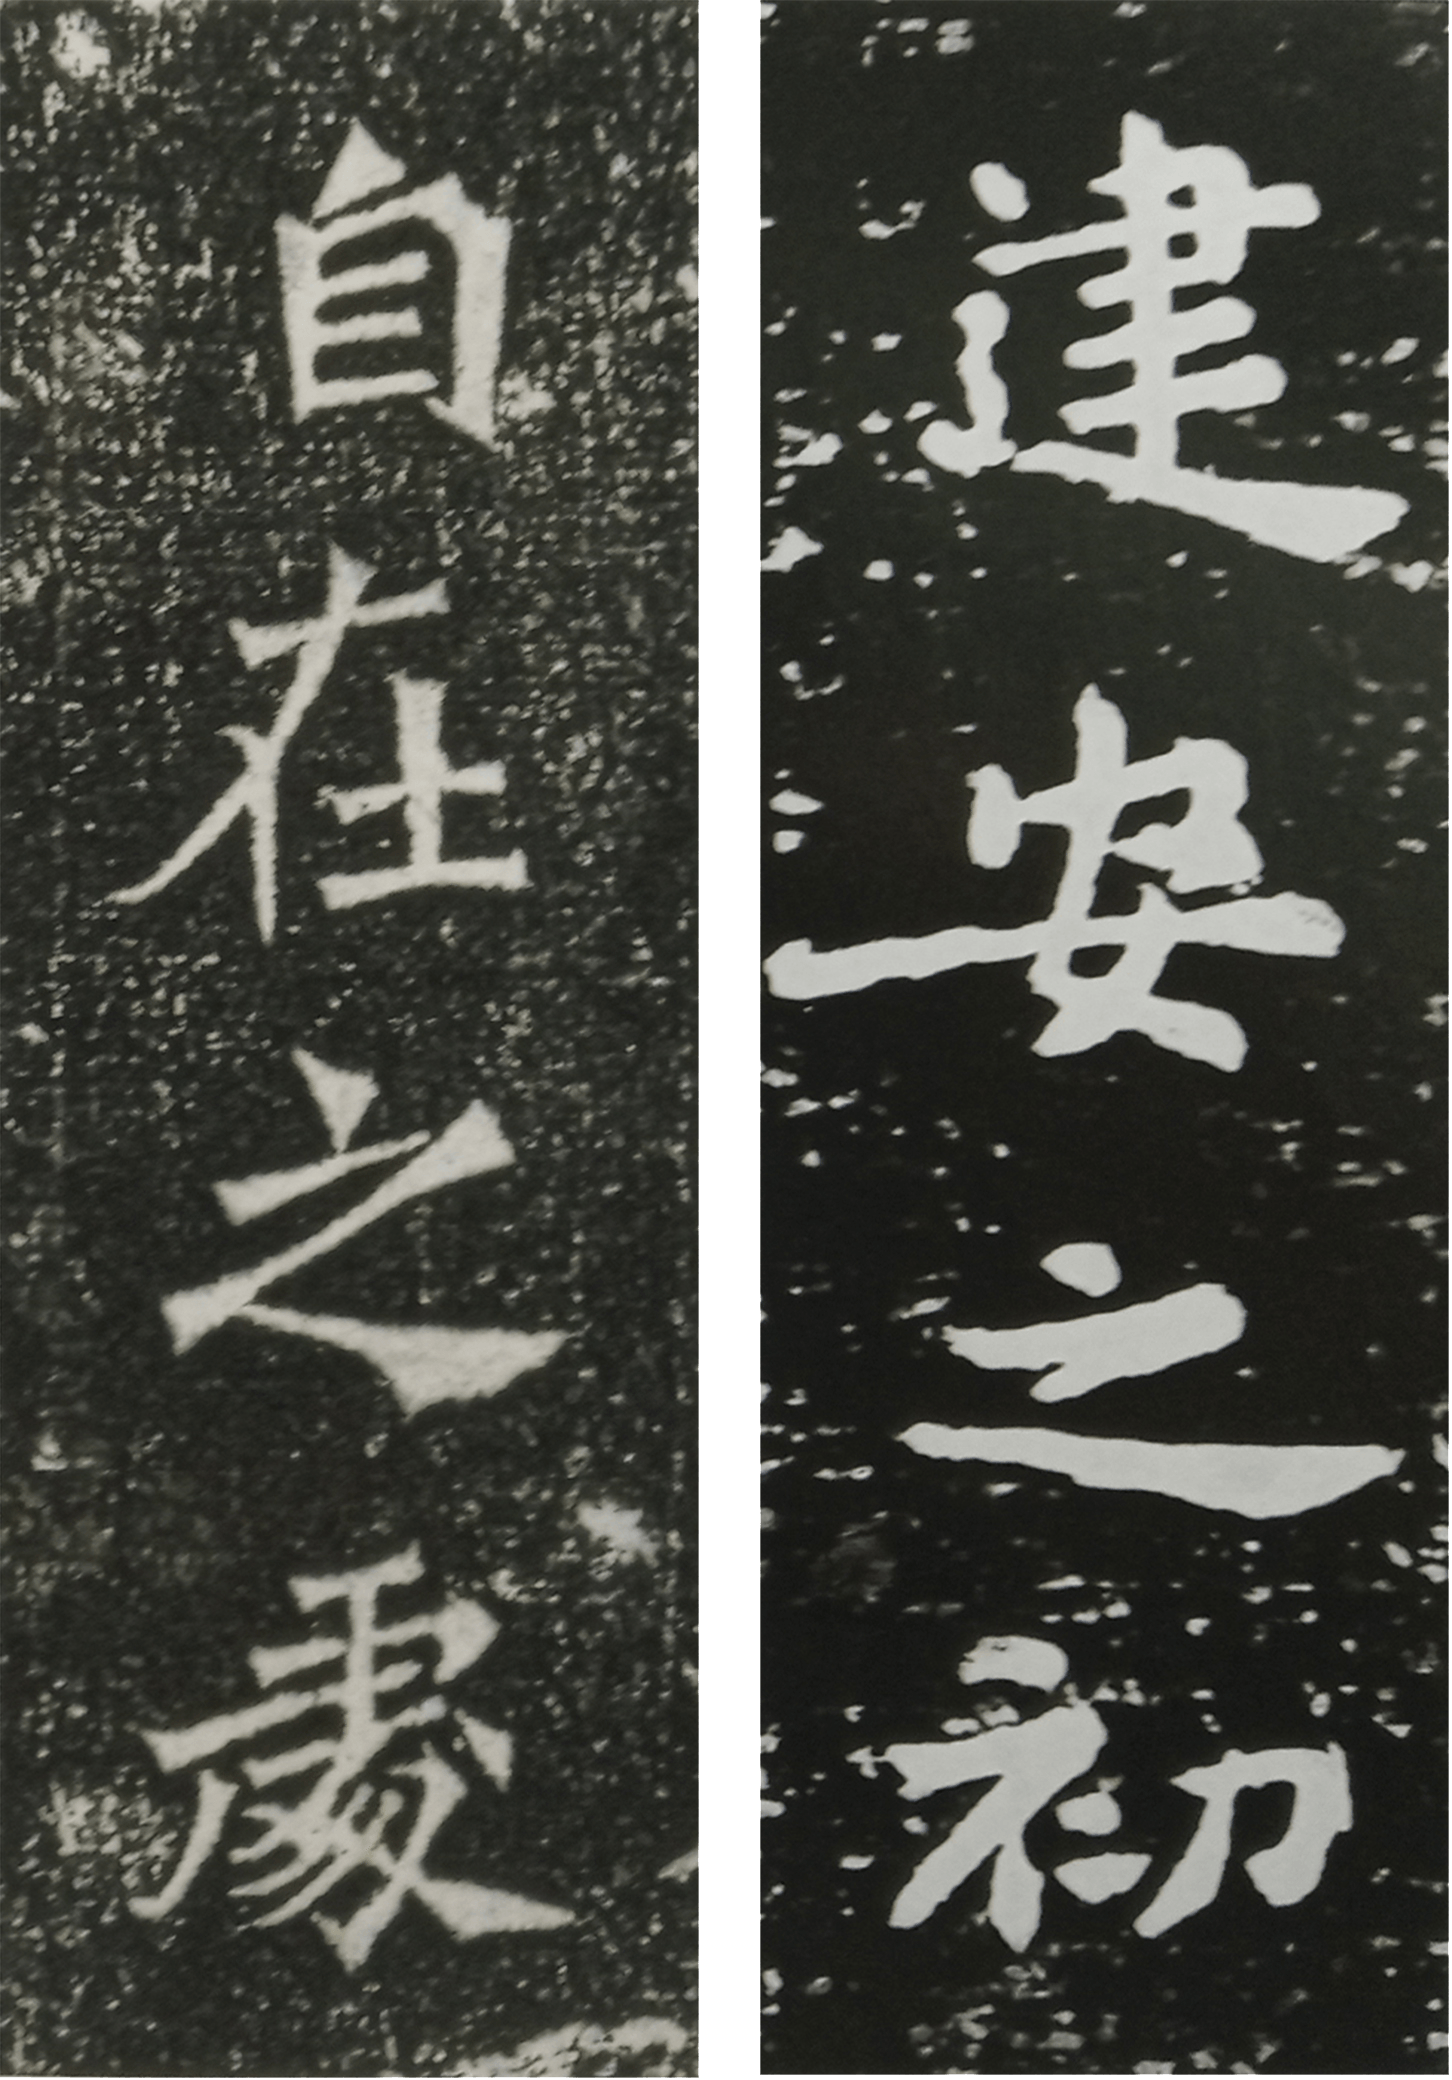 建安之初
自在之處